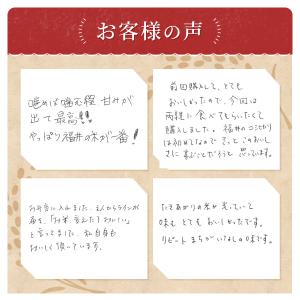 お客様の声
噛めば噛む程 甘みが
出て最高!!
やっぱり福井の味が一番!
前回購入して、とても
おいしかったので、今回は
両親に食べてもらいたくて
購入しました。福井のコシヒカリ
は初めてなので きっと このおいし
さに喜ぶことだろうと 思っています。
お弁当に入れました。
夜、「お米、変えた？おいしい」
と言ってました。私自身も
おいしく頂いています。
たきあがりの米が 光っていて
味も とても おいしかったです。
リピート まちがいなしの味です。